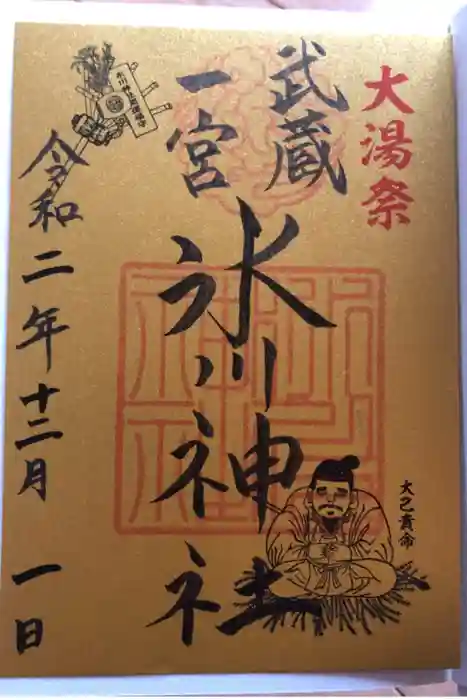 大湯祭
武蔵
一宮
氷川神社
令和二年十二月一日
大己貴命